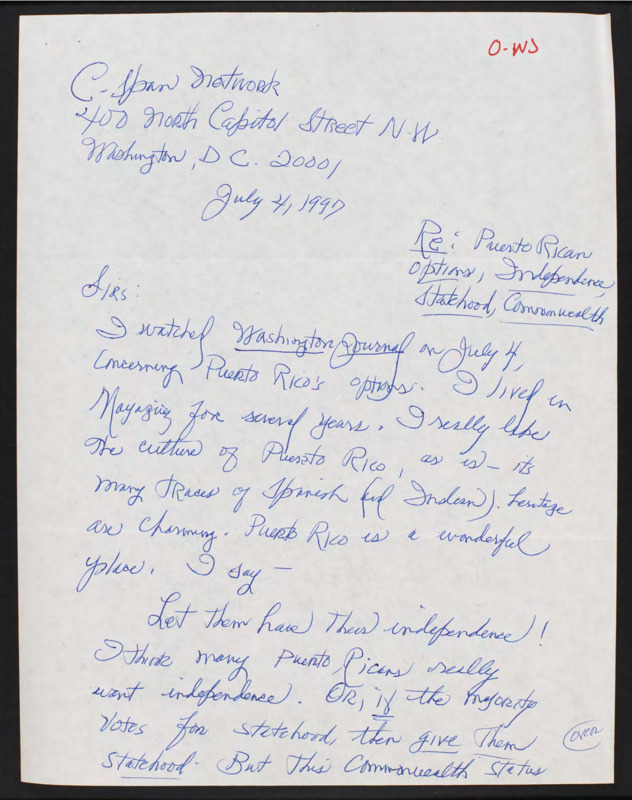 O-WJ
C-Span Network
400 North Capitol Street N.W.
Washington, D.C. 20001
July 4, 1997
Re: Puerto Rican
Options, Independence,
Statehood, Commonwealth
Sirs:
I watched Washington Journal on July 4,
concerning Puerto Rico's options. I lived in
for several years. I really like
the culture of Puerto Rico, as is – its
many traces of Spanish (and Indian) heritage
are charming. Puerto Rico is a wonderful
place. I say –
Let them have their independence!
I think many Puerto Ricans really
want independence. OR, if the majority
votes for statehood, then give them
statehood. But this Commonwealth status
over